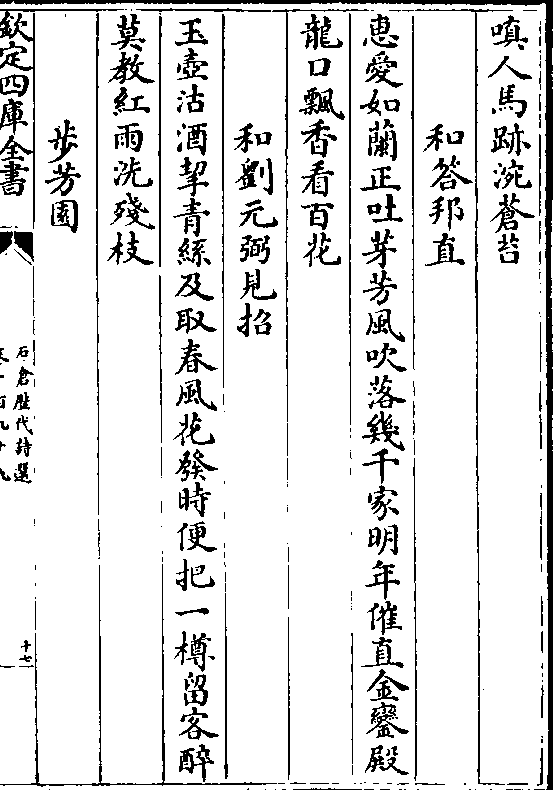 嗔人馬跡涴蒼苔
和答邦直
惠愛如蘭正吐芽芳風吹落幾千家明年催直金鑾殿
龍口飄香看百花
和劉元弼見招
玉壺沽酒挈青絲及取春風花發時便把一樽留客醉
莫教紅雨洗殘枝
歩芳園
欽定四庫全書
石倉歷代詩選
十七